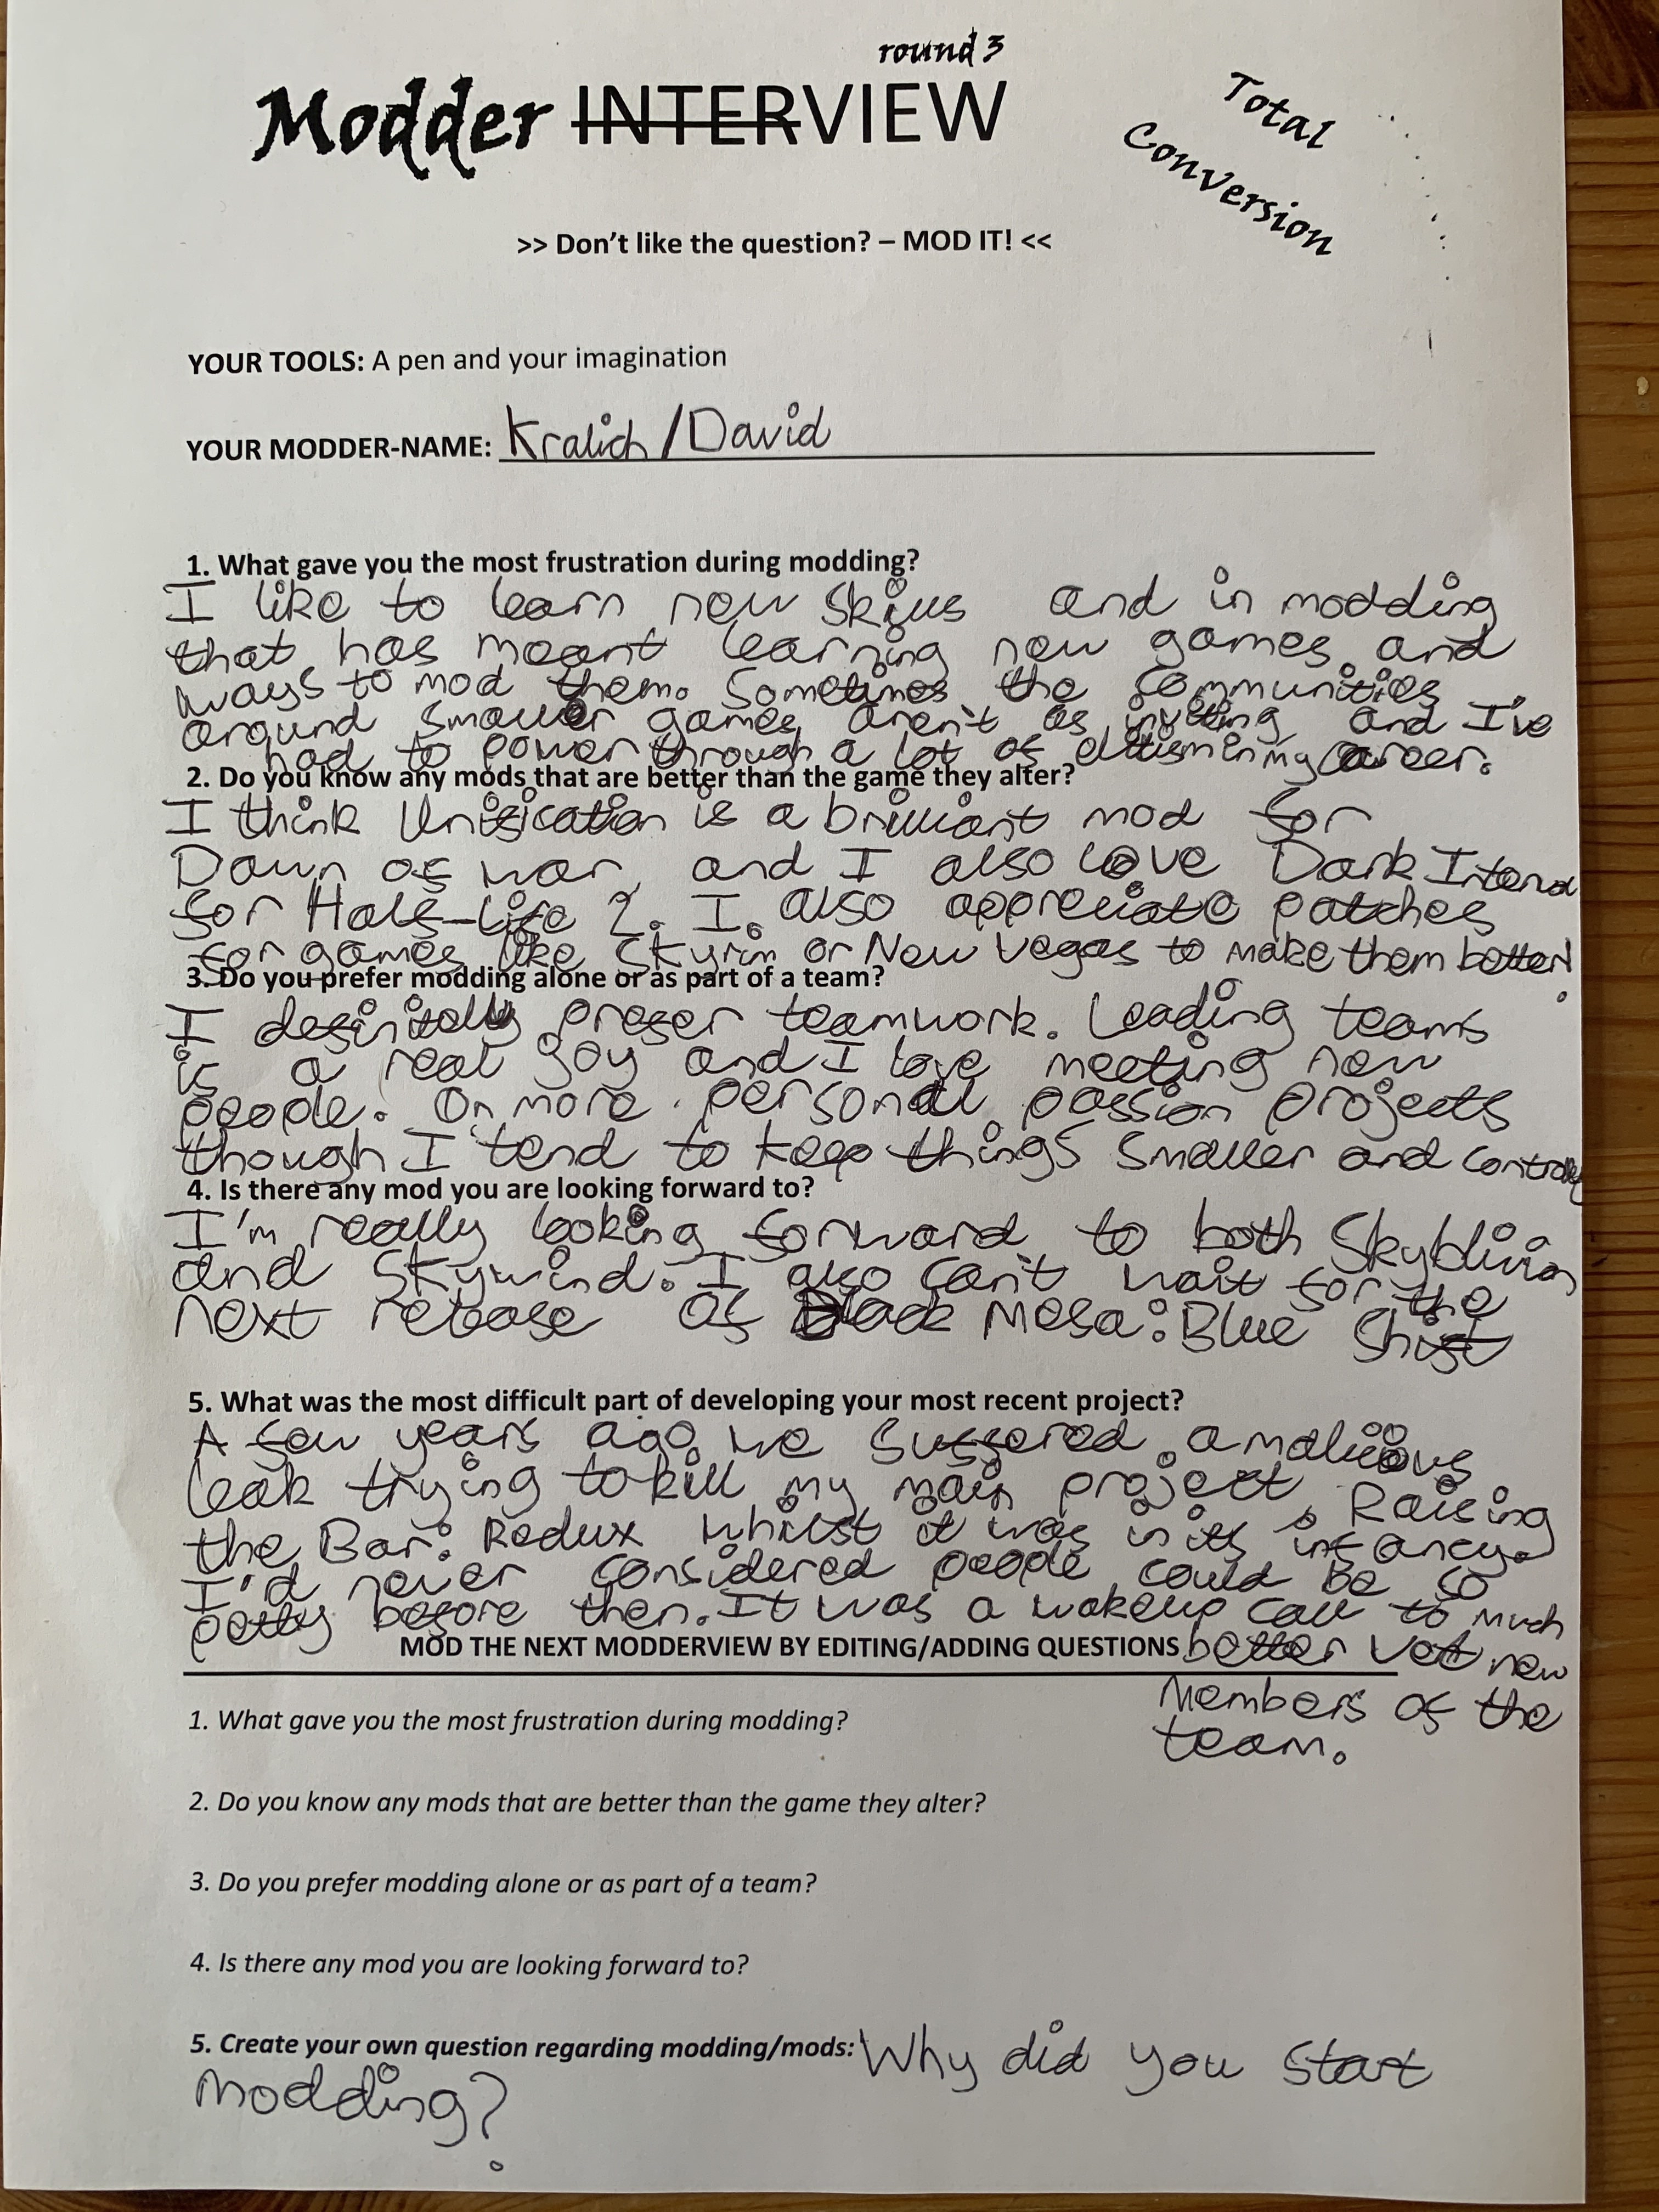 round 3
Modder INTERVIEW
Total
Conversion
>> Don't like the question? – MOD IT! <<
YOUR TOOLS: A pen and your imagination
YOUR MODDER-NAME: Kralich / David
1. What gave you the most frustration during modding?
I like to learn new skills and in modding
that has meant learning new games and
ways to mod them. Sometimes the communities
around smaller games aren't as inviting and I've
had to power through a lot of elitism in my career.
2. Do you know any mods that are better than the game they alter?
I think Unification is a brilliant mod for
Dawn of war, and I also love Dark Interval
for Half-Life 2. I also appreciate patches
for games like Skyrim or New Vegas to make them better!
3. Do you prefer modding alone or as part of a team?
I definitely prefer teamwork. Leading teams
is a real joy and I love meeting new
people. On more personal passion projects
though I tend to keep things smaller and
4. Is there any mod you are looking forward to?
I'm really looking forward to both Skyblivion
and Skywind. I also can't wait for the
next release of Black Mesa: Blue Shift
5. What was the most difficult part of developing your most recent project?
A few years ago we suffered a malicious
leak trying to kill my main project, Raising
the Bar: Redux whilst it was in its infancy.
I'd never considered people could be so
petty before then. It was a wakeup call to much
better vet new
members of the
team.
MOD THE NEXT MODDERVIEW BY EDITING/ADDING QUESTIONS
1. What gave you the most frustration during modding?
2. Do you know any mods that are better than the game they alter?
3. Do you prefer modding alone or as part of a team?
4. Is there any mod you are looking forward to?
5. Create your own question regarding modding/mods: Why did you start
modding?